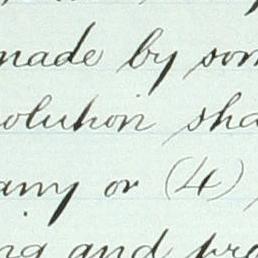 made by som
olution sha
any or (4)
ng and pro